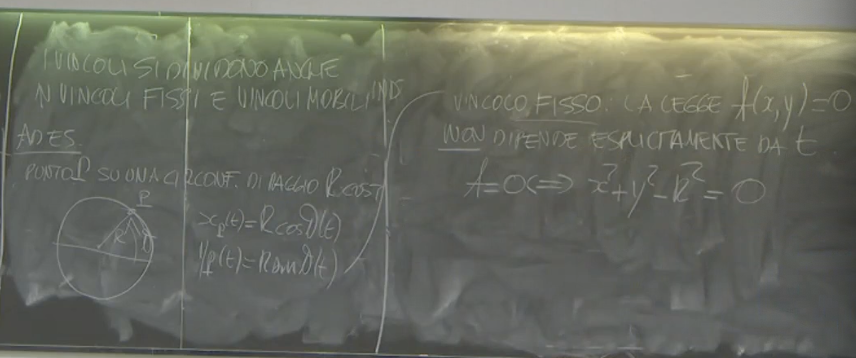 I VINCOLI SI DIVIDONO ANCHE
IN VINCOLI FISSI E VINCOLI MOBILI
AD ES.
PUNTO P SU UNA CIRCONF. DI RAGGIO R COST
P
R
x_P(t)=R cos θ(t)
y_P(t)=R sin θ(t)
VINCOLO FISSO: LA LEGGE f(x,y)=0
NON DIPENDE ESPLICITAMENTE DA t
f=0 <=> x²+y²-R²=0